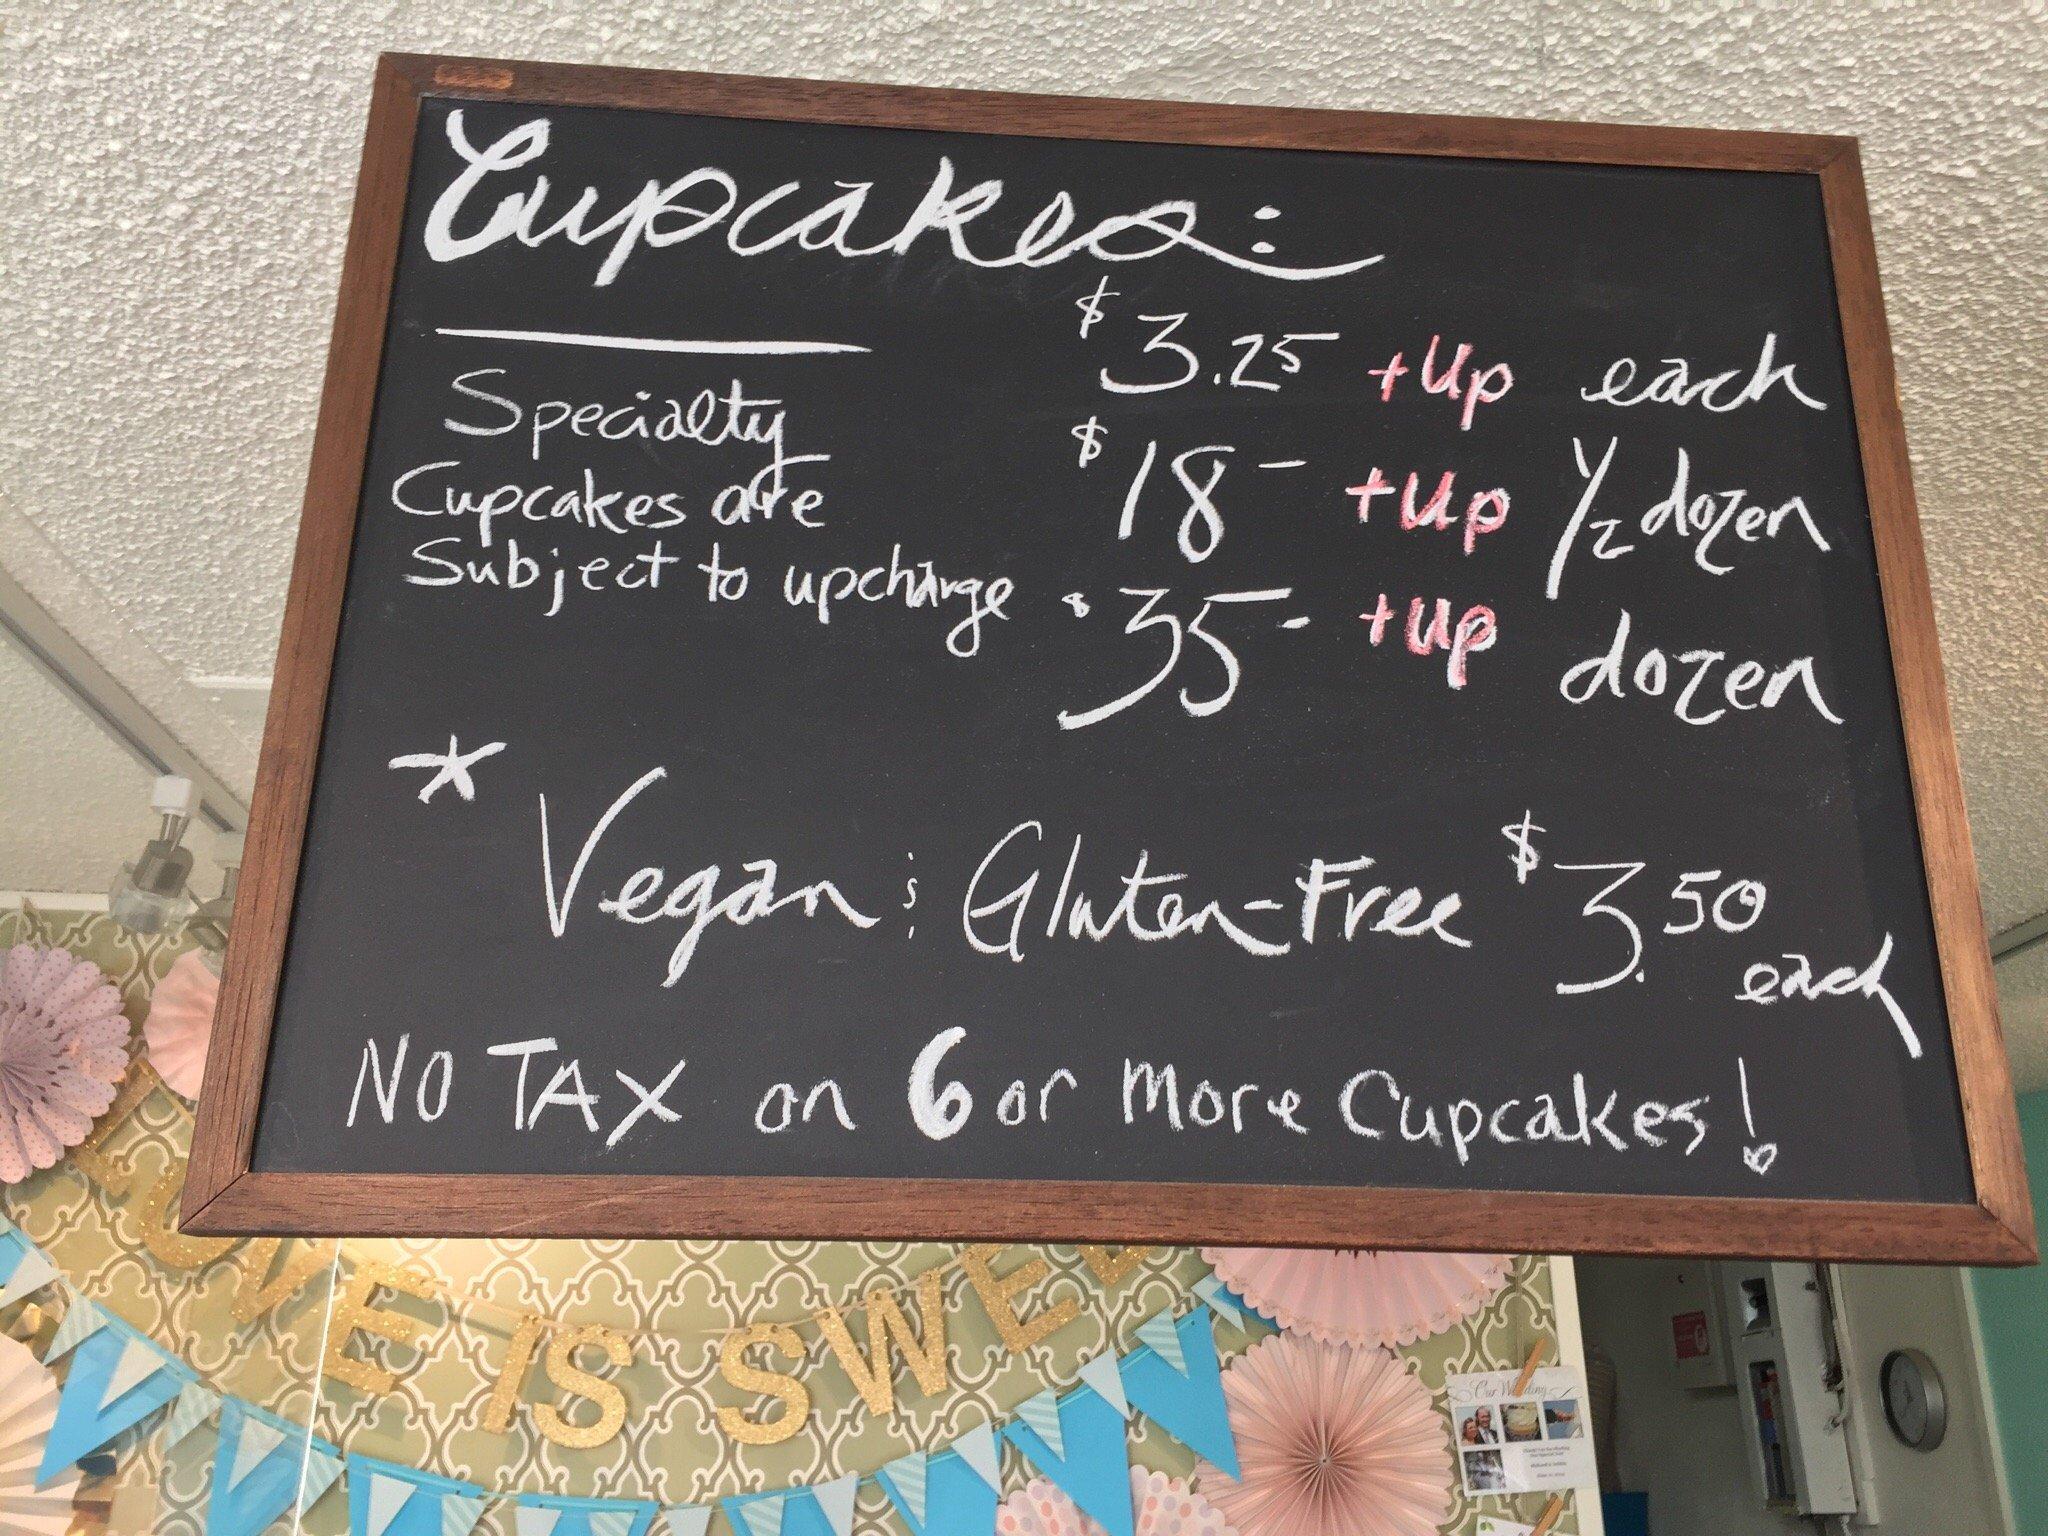 Cupcakes:
$3.25 +up each
Specialty
Cupcakes are
Subject to upcharge
$18- +up 1/2 dozen
$35- +up dozen
* Vegan & Gluten-Free $3.50 each
NO TAX on 6 or more Cupcakes!
OVE IS SWEE
Our Wedding